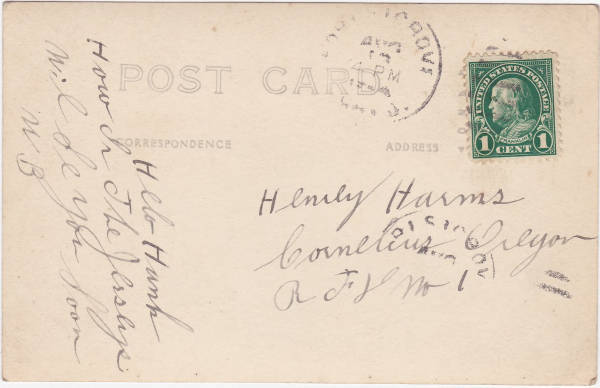 POST CARD
CORRESPONDENCE
ADDRESS
Hello Hank
How Is The Jerseys
Will Se you Soon
W B
UNITED STATES POSTAGE
FRANKLIN
1 CENT 1
AUG
PM
Henry Harms
Cornelius Oregon
R F D No 1